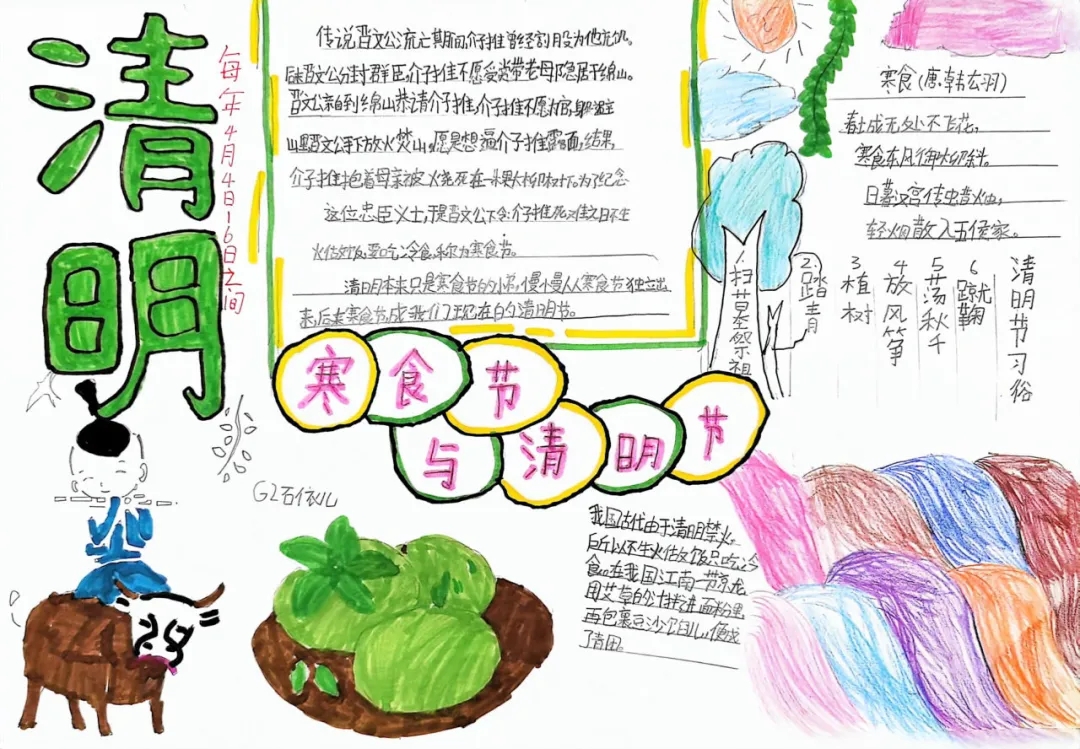 清明
每年4月4日-6日之间
传说晋文公流亡期间介子推曾经割股为他充饥。
后来晋文公分封群臣介子推不愿受赏带老母隐居于绵山。
晋文公亲自到绵山恭请介子推,介子推不愿为官,躲避
山里晋文公手下放火焚山,愿是想逼介子推露面,结果
介子推抱着母亲被火烧死在一棵大柳树下。为了纪念
这位忠臣义士,于是晋文公下令:介子推死难之日不生
火做饭,要吃冷食,称为寒食节。
清明本来只是寒食节的小节,慢慢从寒食节独立出
来,后来寒食节成我们现在的清明节。
寒食节
与清明节
寒食(唐.韩左羽)
春城无处不飞花,
寒食东风御柳斜。
日暮汉宫传虫昔火虫,
轻烟散入五侯家。
清明节习俗
1.扫墓祭祖
2.踏青
3植树
4放风筝
5荡秋千
6蹴鞠
G2石依儿
我国古代由于清明禁火,
所以不生火做饭只吃冷
食。在我国江南一带
用艾草的汁拌进面粉里
再包裹豆沙
了青团。